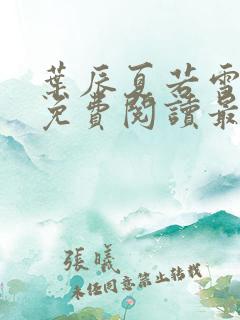 葉辰夏若雪
免費閱讀最
張曦
未经同意禁止转载